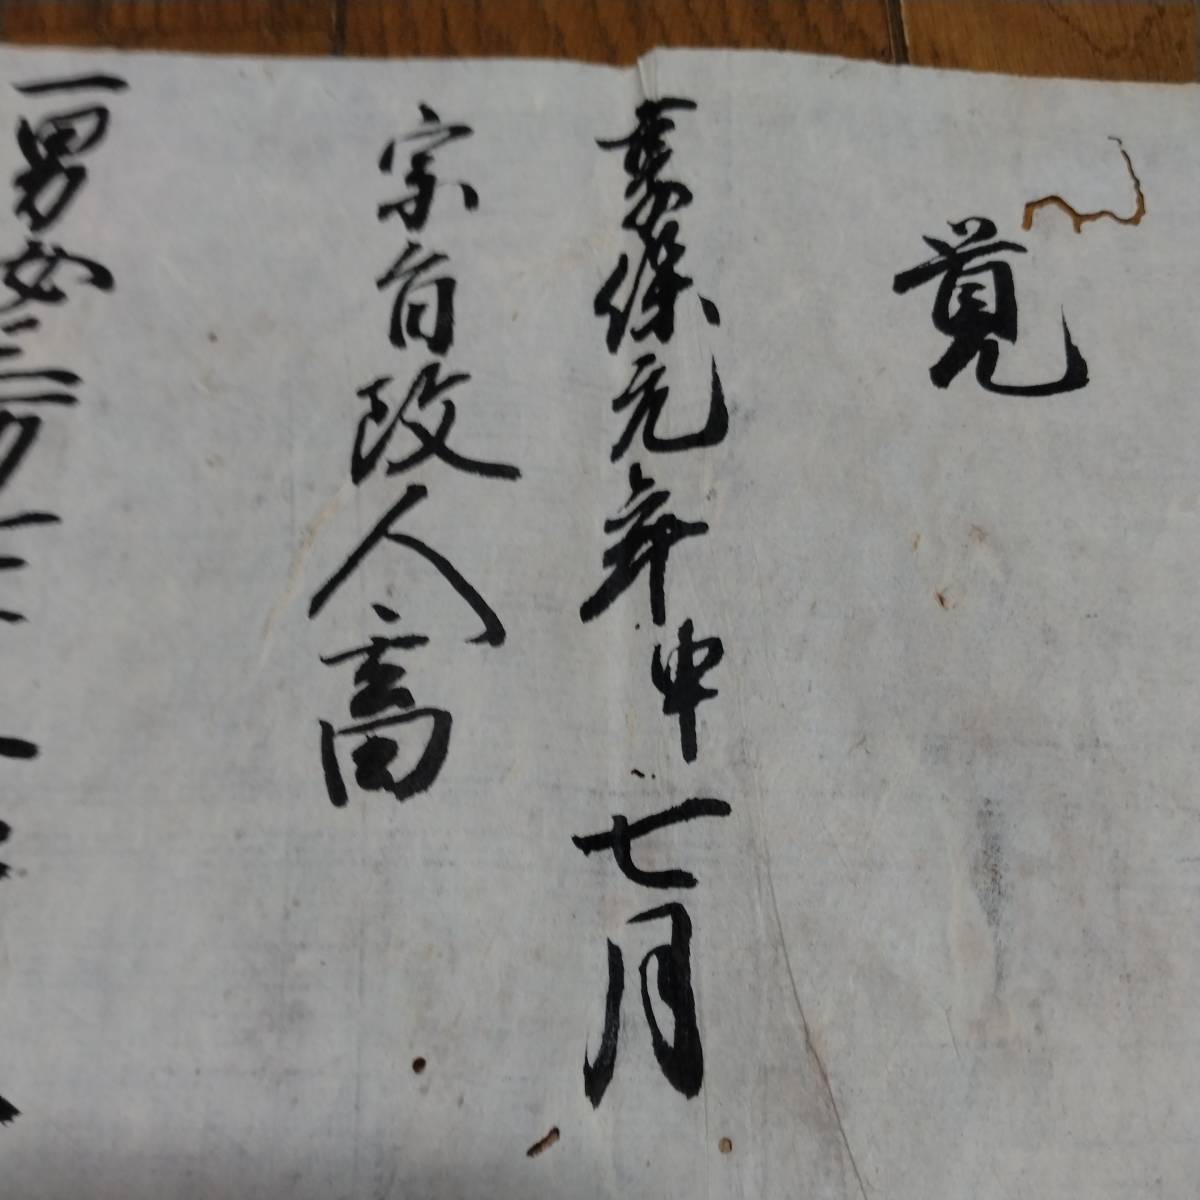 覚
享保元年申七月
宗旨改人高
一男女三万